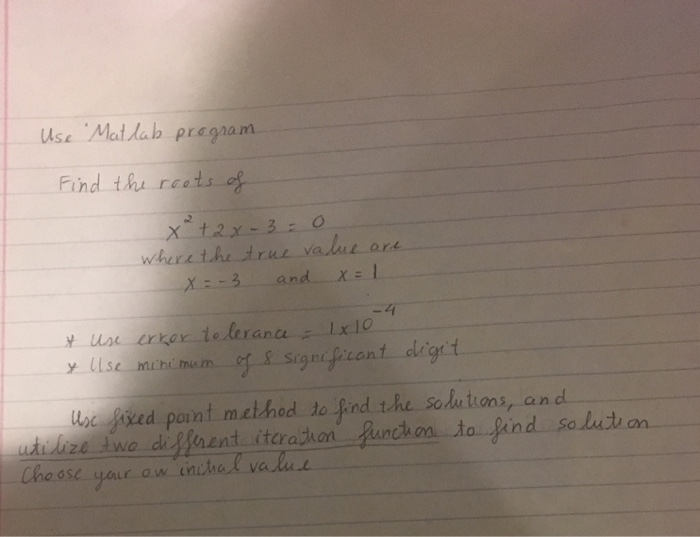 Use Matlab program
Find the roots of
x² + 2x - 3 = 0
where the true value are
x = -3 and x = 1
* Use error tolerance = 1x10⁻⁴
* Use minimum of 8 significant digit
Use fixed point method to find the solutions, and
utilize two different iteration function to find solution
Choose your ow initial value